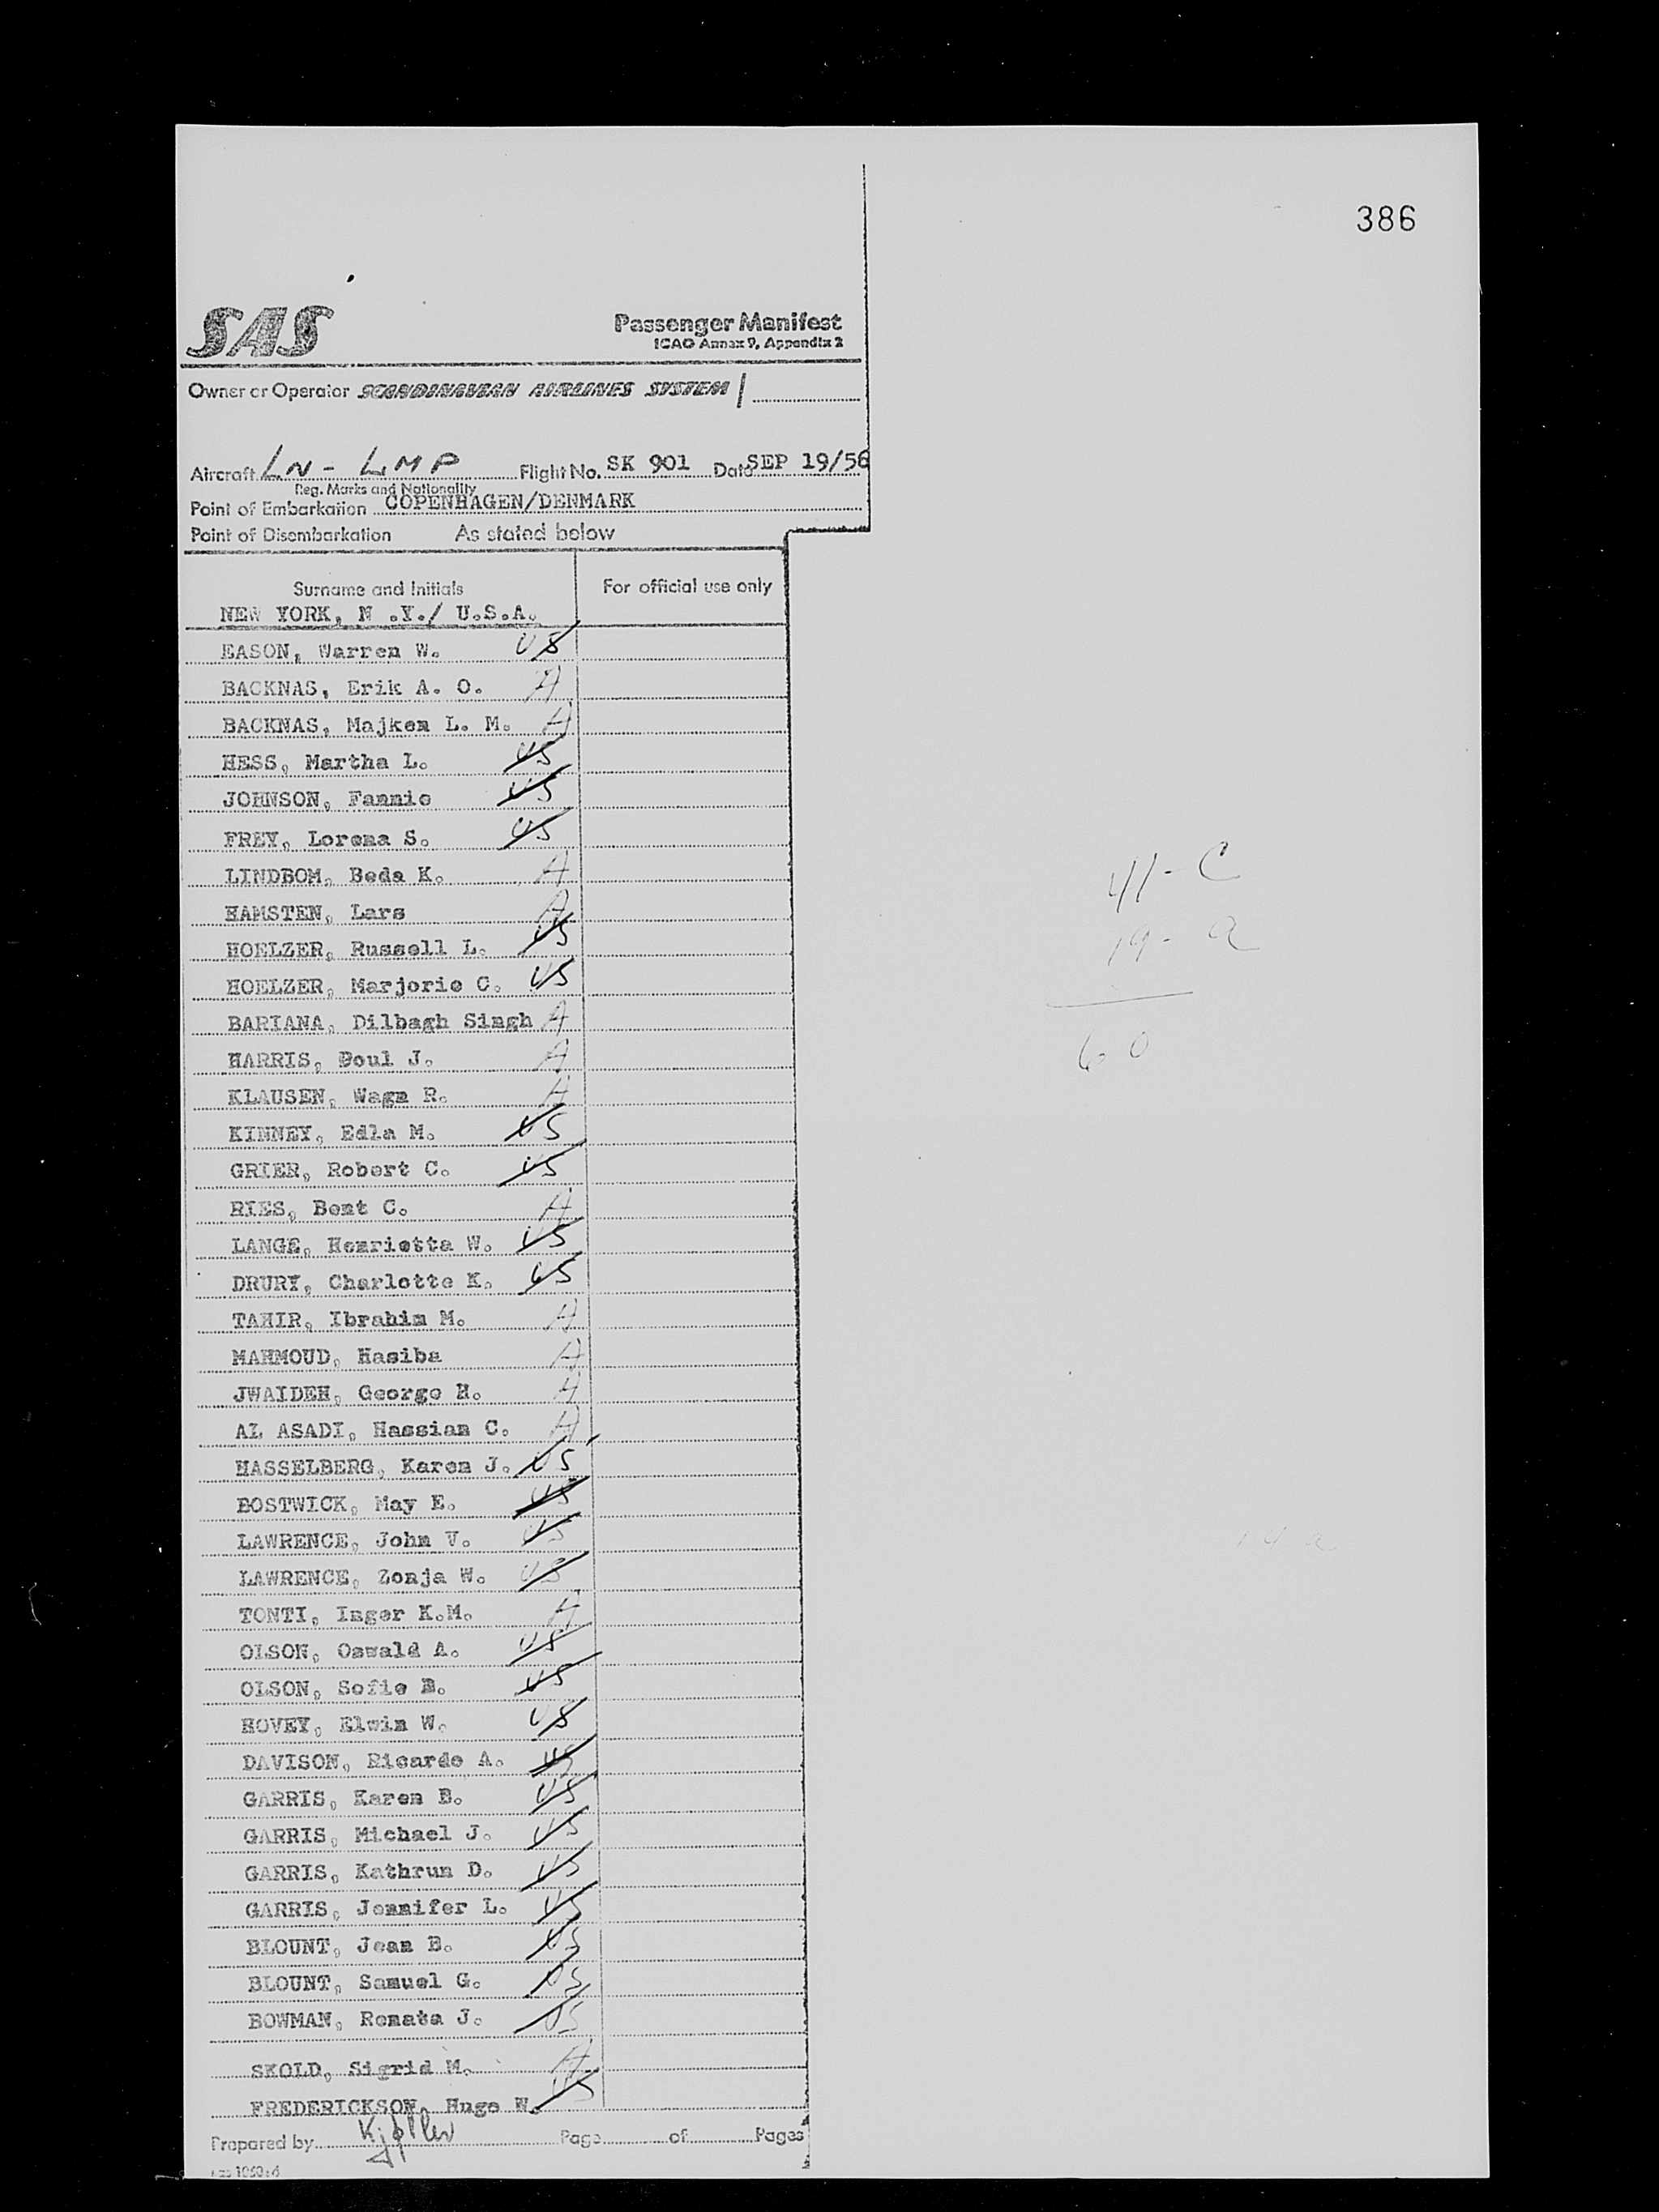 386
SAS
Passenger Manifest
ICAO Annex 9, Appendix 2
Owner or Operator SCANDINAVIAN AIRLINES SYSTEM /
Aircraft LN - LMP Flight No. SK 901 Date SEP 19/56
Reg. Marks and Nationality
Point of Embarkation COPENHAGEN/DENMARK
Point of Disembarkation As stated below
Surname and Initials For official use only
NEW YORK, N .Y./ U.S.A.
EASON, Warren W. US
BACKNAS, Erik A. O. A
BACKNAS, Majken L. M. A
HESS, Martha L. US
JOHNSON, Fannie US
FREY, Lorena S. US
LINDBOM, Beda K. A
HAMSTEN, Lars A
HOELZER, Russell L. US
HOELZER, Marjorie C. US
41-C
19-a
60
BARIANA, Dilbagh Singh A
HARRIS, Poul J. A
KLAUSEN, Wagn R. A
KINNEY, Edla M. US
GRIER, Robert C. US
RIES, Bent C. A
LANGE, Henrietta W. US
DRURY, Charlotte K. US
TAHIR, Ibrahim M. A
MAHMOUD, Hasiba A
JWAIDEH, George H. A
AL ASADI, Hassian C. A
HASSELBERG, Karen J. US
BOSTWICK, May E. US
LAWRENCE, John V. US
LAWRENCE, Zonja W. US
TONTI, Inger K.M. A
OLSON, Oswald A. US
OLSON, Sofie B. US
HOVEY, Elwin W. US
DAVISON, Ricardo A. US
GARRIS, Karen B. US
GARRIS, Michael J. US
GARRIS, Kathrun D. US
GARRIS, Jennifer L. US
BLOUNT, Jean B. US
BLOUNT, Samuel G. US
BOWMAN, Renata J. US
SKOLD, Sigrid M. A
FREDERICKSON, Hugo W. US
Prepared by Kjøller Page of Pages